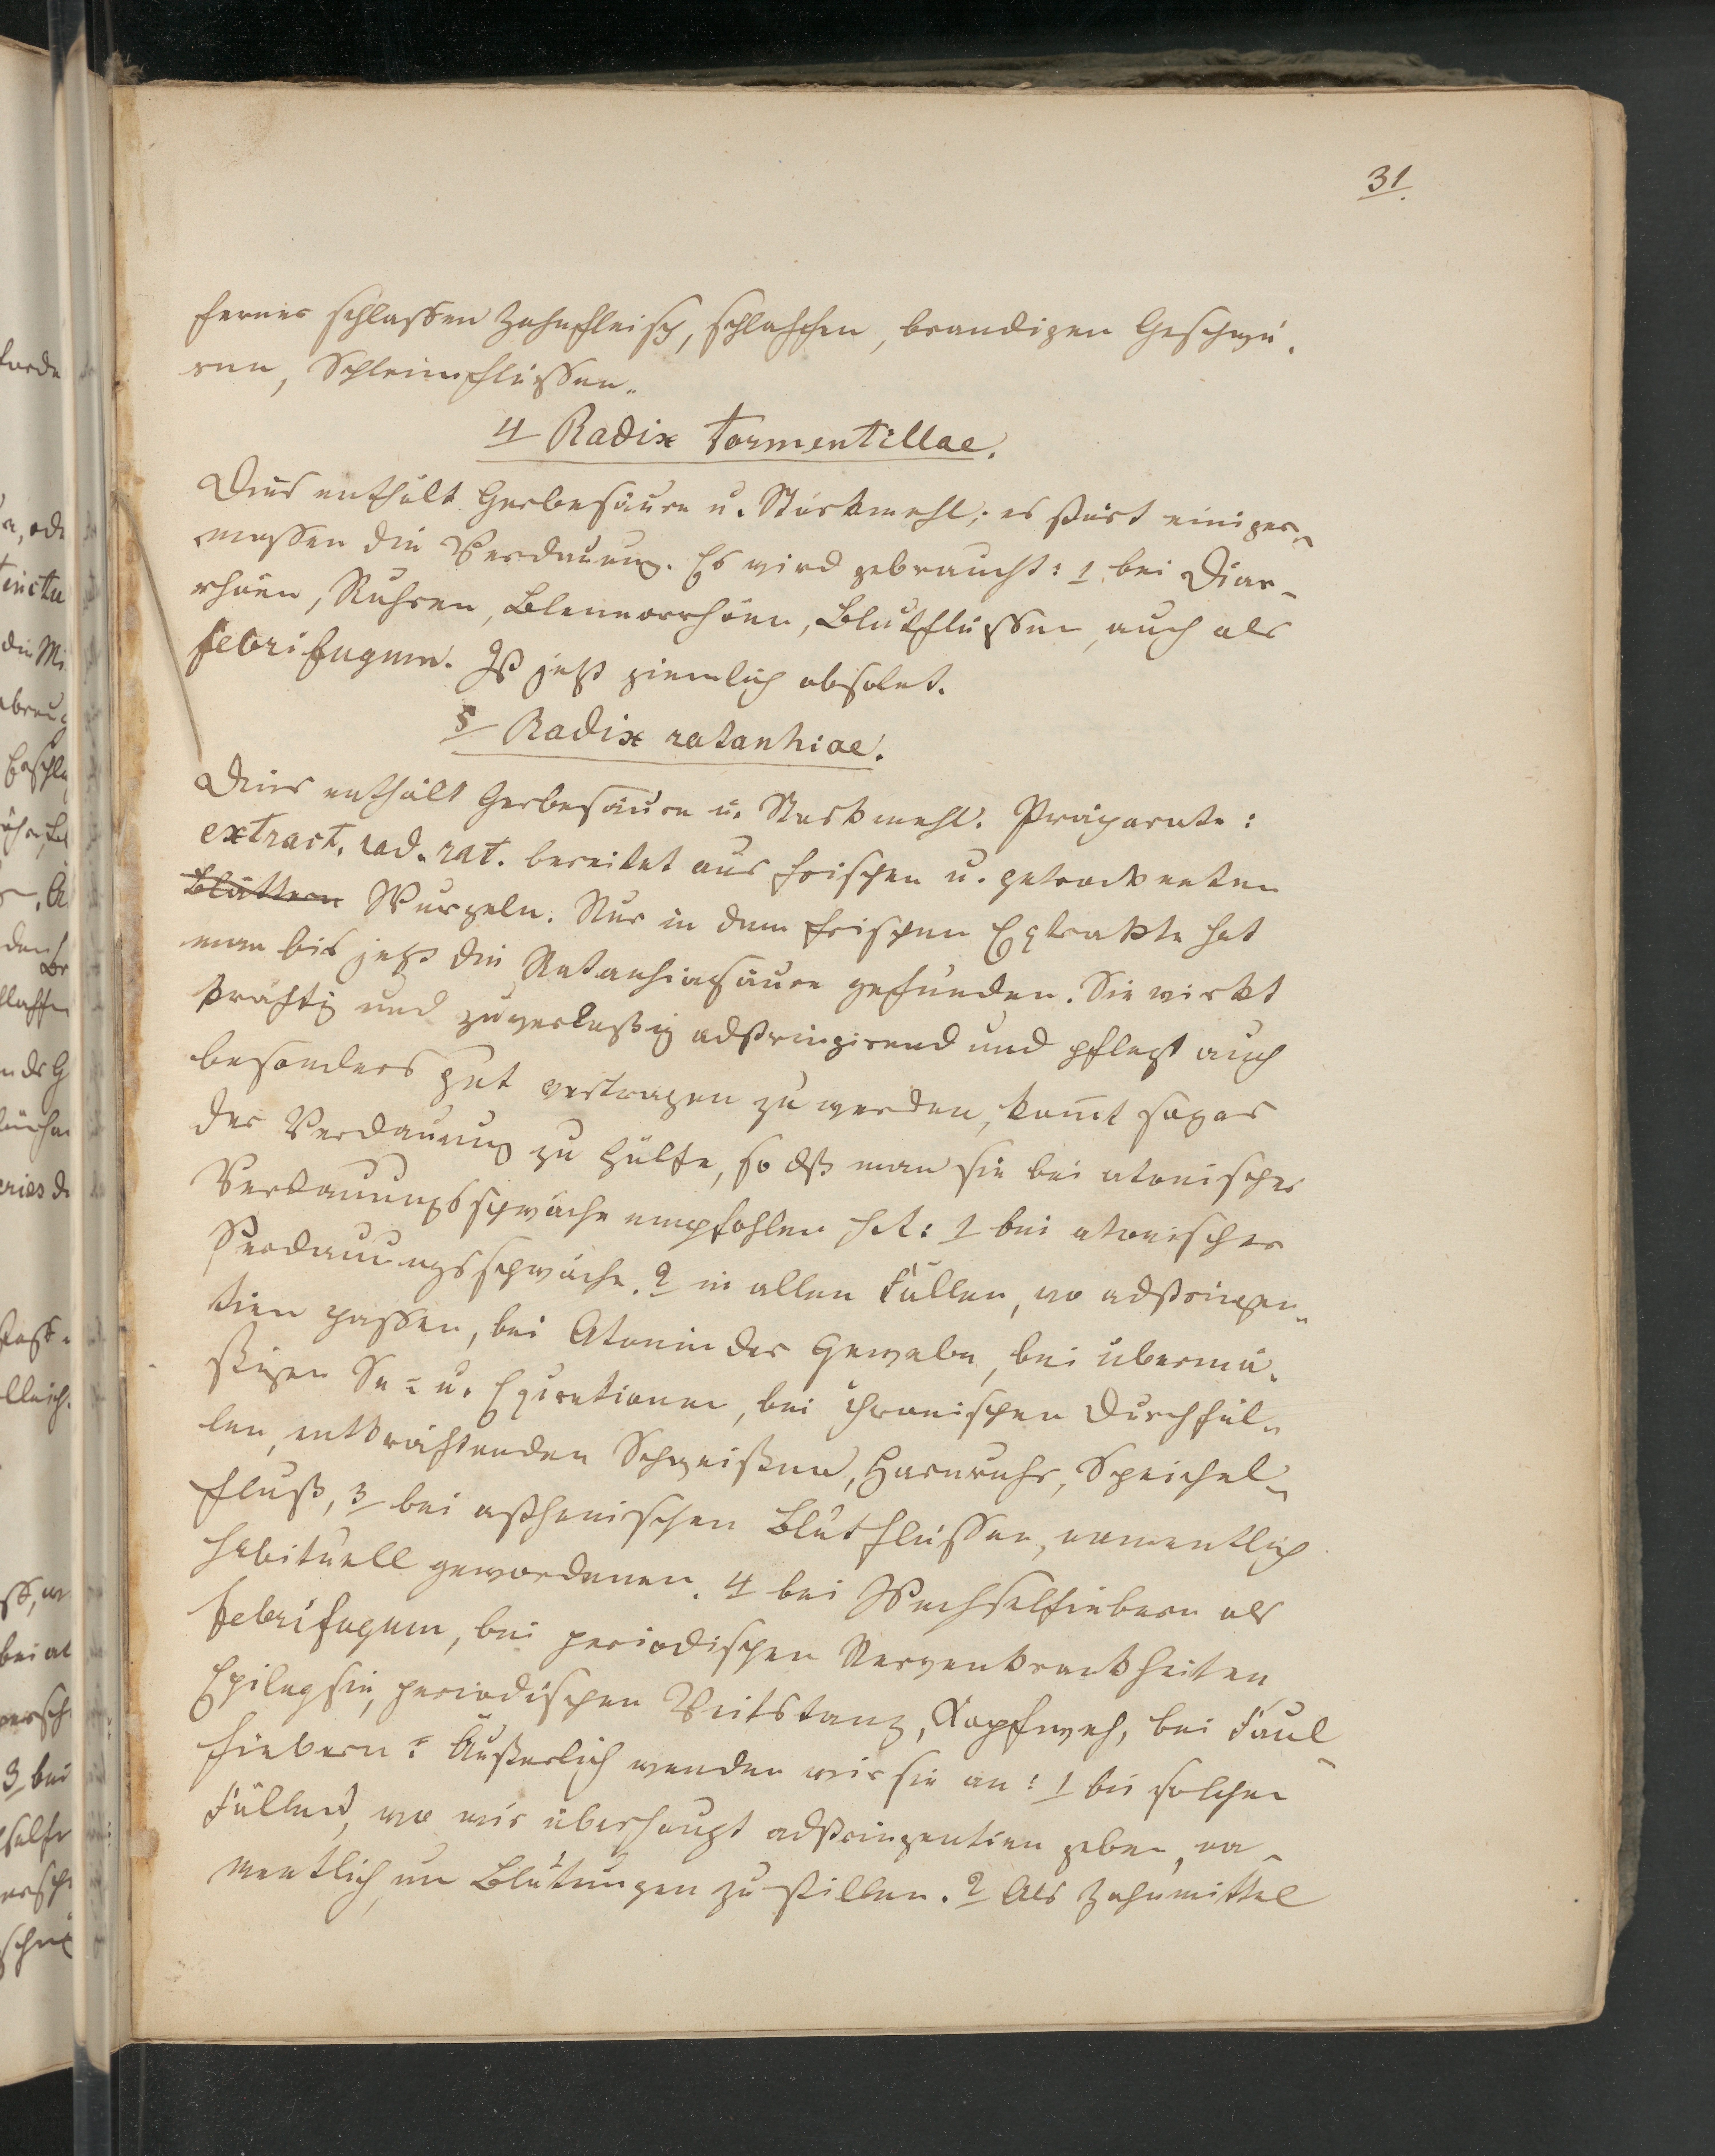 31.
ferner schlaffem Zahnfleisch, schlaffen, brandigen Geschwü-
ren, Schleimflüssen.
4 Radix tormentillae.
Dies enthält Gerbesäure u. Stärkmehl; es stört einiger-
massen die Verdauung. Es wird gebraucht: 1, bei Diar-
rhöen, Ruhren, Blennorrhöen, Blutflüssen, auch als
febrifugum. Ist jetzt ziemlich obsolet.
5 Radix ratanhiae.
Dies enthält Gerbesäure u. Starkmehl. Präparate:
extract. rad. rat. bereitet aus frischen u. getrockneten
Blättern Wurzeln. Nur in dem frischen Extrakte hat
man bis jetzt die Ratanhiasäure gefunden. Sie wirkt
kräftig und zuverlaßig adstringirend und pflegt auch
besonders gut vertragen zu werden, komt sogar
der Verdauung zu Hülfe, so dß man sie bei atonischer
Verdauungsschwäche empfohlen hat: 1 bei atonischer
Verdauungsschwäche. 2 in allen Fällen, wo adstringen-
tien passen, bei Atonie der Gewebe, bei übermä-
ßigen Se- u. Excretionen, bei chronischen Durchfäl-
len, entkräftenden Schweißen, Harnruhr, Speichel-
fluß, 3 bei asthenischen Blutflüssen, namentlich
habituell gewordenen. 4 bei Wechselfiebern als
febrifugum, bei periodischen Nervenkrankheiten
Epilepsie, periodischen Veitstanz, Kopfweh, bei Faul-
fiebern. Äußerlich wenden wir sie an: 1 bei solchen
Fällen, wo wir überhaupt adstringentien geben, na-
mentlich, um Blutungen zu stillen. 2 Als Zahnmittel